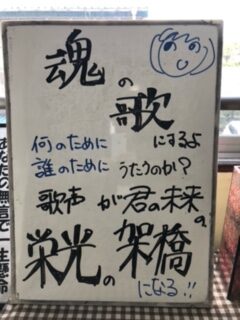 魂の
歌
にするよ
何のために
誰のために うたうのか?
歌声が君の未来の、
栄光の架橋
になる!!
あなたの無言で一生懸命